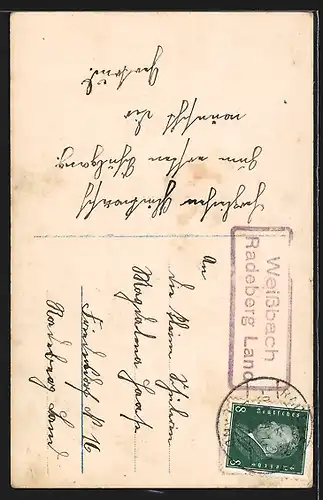 Herzlichen Glückwunsch
zum ersten Schulgang
wünscht dir
An
die kleine Schülerin
Magdalena Haase
N. 16
Radeberg Land
Weißbach
Radeberg Land
8 Deutsches 8
Reich